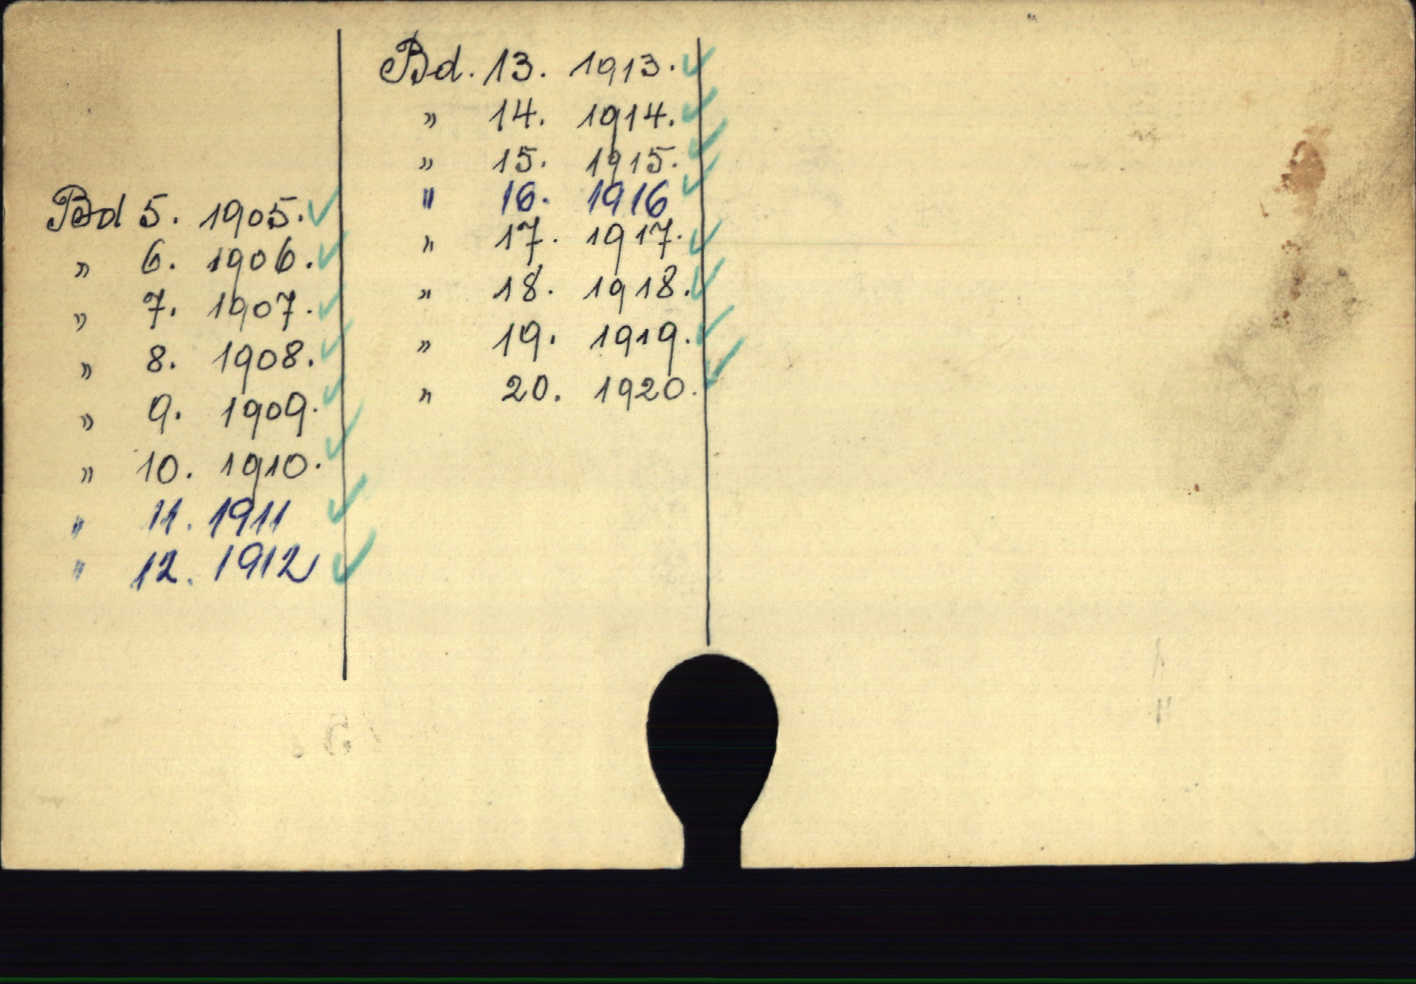 Bd 5. 1905. ✓
" 6. 1906. ✓
" 7. 1907. ✓
" 8. 1908. ✓
" 9. 1909. ✓
" 10. 1910. ✓
" 11. 1911 ✓
" 12. 1912 ✓
Bd. 13. 1913. ✓
" 14. 1914. ✓
" 15. 1915. ✓
" 16. 1916 ✓
" 17. 1917. ✓
" 18. 1918. ✓
" 19. 1919. ✓
" 20. 1920. ✓